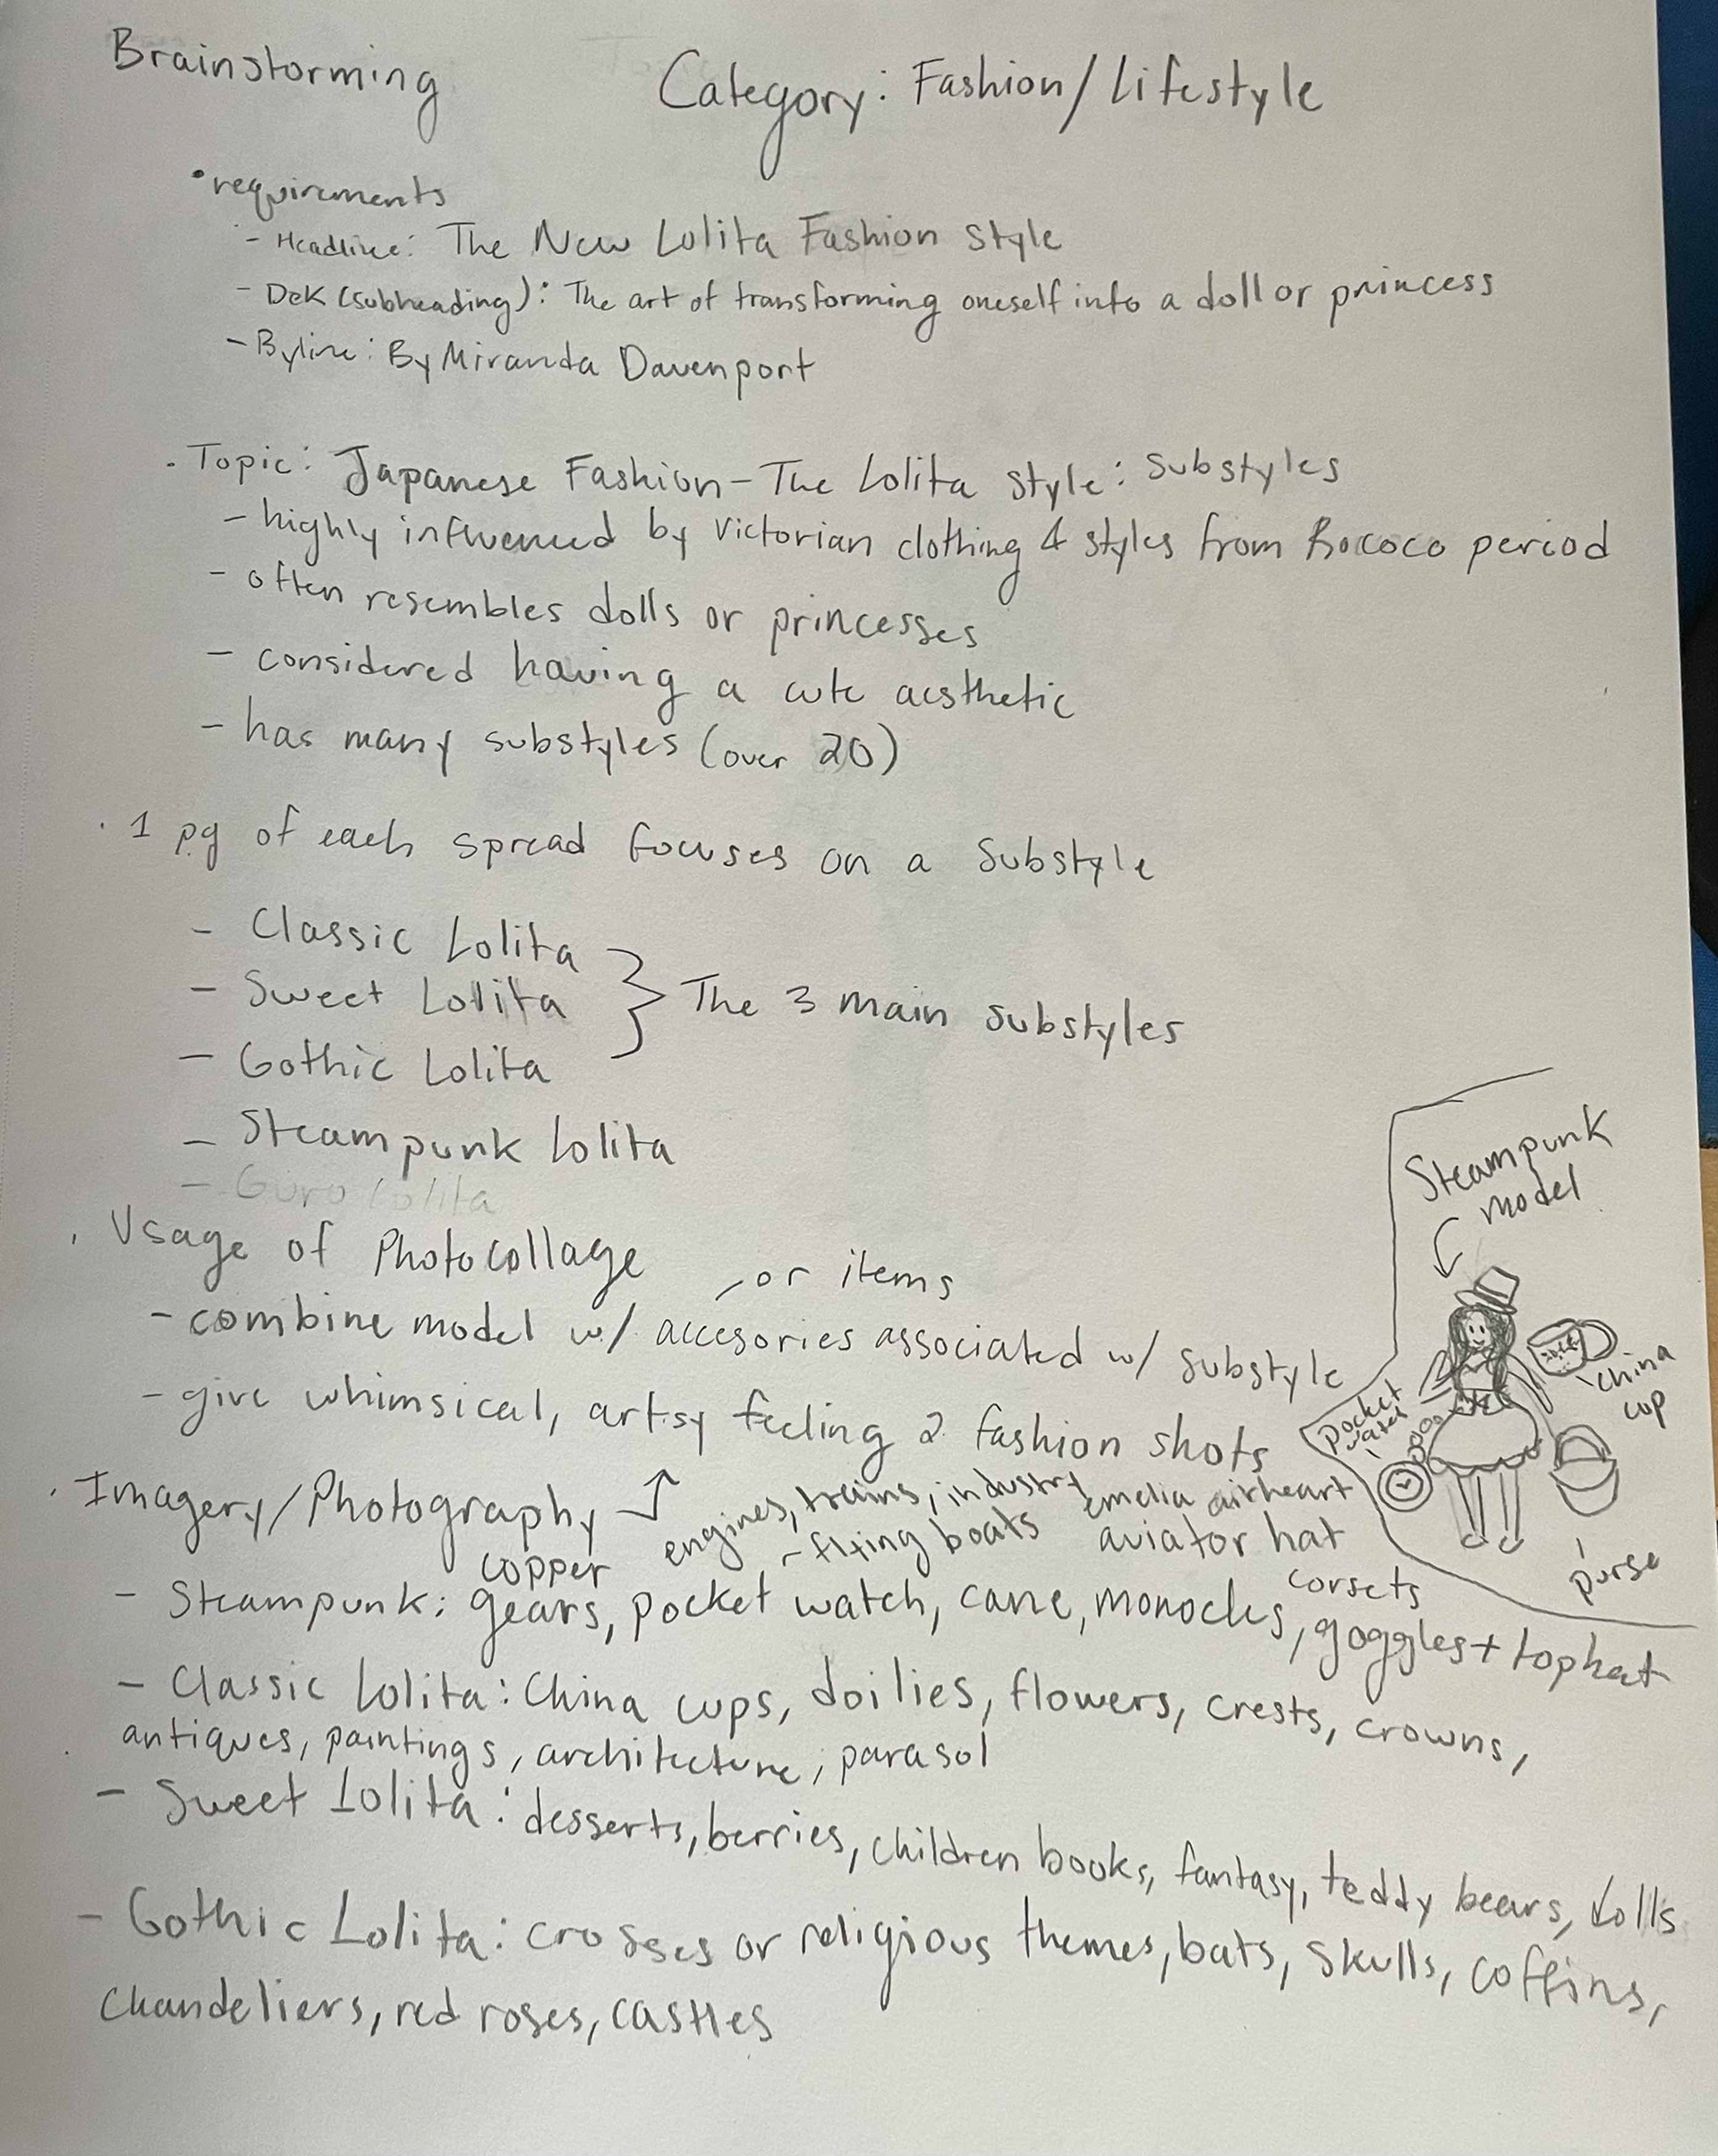 Brainstorming
Category: Fashion/Lifestyle
• requirements
- Headline: The New Lolita Fashion Style
- Dek (subheading): The art of transforming oneself into a doll or princess
- Byline: By Miranda Davenport
. Topic: Japanese Fashion - The Lolita Style: Substyles
- highly influenced by Victorian clothing & styles from Rococo period
- often resembles dolls or princesses
- considered having a cute aesthetic
- has many substyles (over 20)
. 1 pg of each spread focuses on a Substyle
- Classic Lolita
- Sweet Lolita
- Gothic Lolita
} The 3 main substyles
- Steampunk Lolita
- Guro Lolita
. Usage of Photocollage
or items
- combine model w/ accesories associated w/ substyle
- give whimsical, artsy feeling 2 fashion shots
. Imagery/Photography
engines, trains, industry
emelia airheart
copper
- flying boats
aviator hat
corsets
- Steampunk: gears, pocket watch, cane, monocles, goggles + tophat
- Classic Lolita: China cups, doilies, flowers, crests, crowns,
antiques, paintings, architecture, parasol
- Sweet Lolita: desserts, berries, children books, fantasy, teddy bears, dolls
- Gothic Lolita: crosses or religious themes, bats, skulls, coffins,
chandeliers, red roses, castles
Steampunk
model
china
cup
pocket
watch
purse